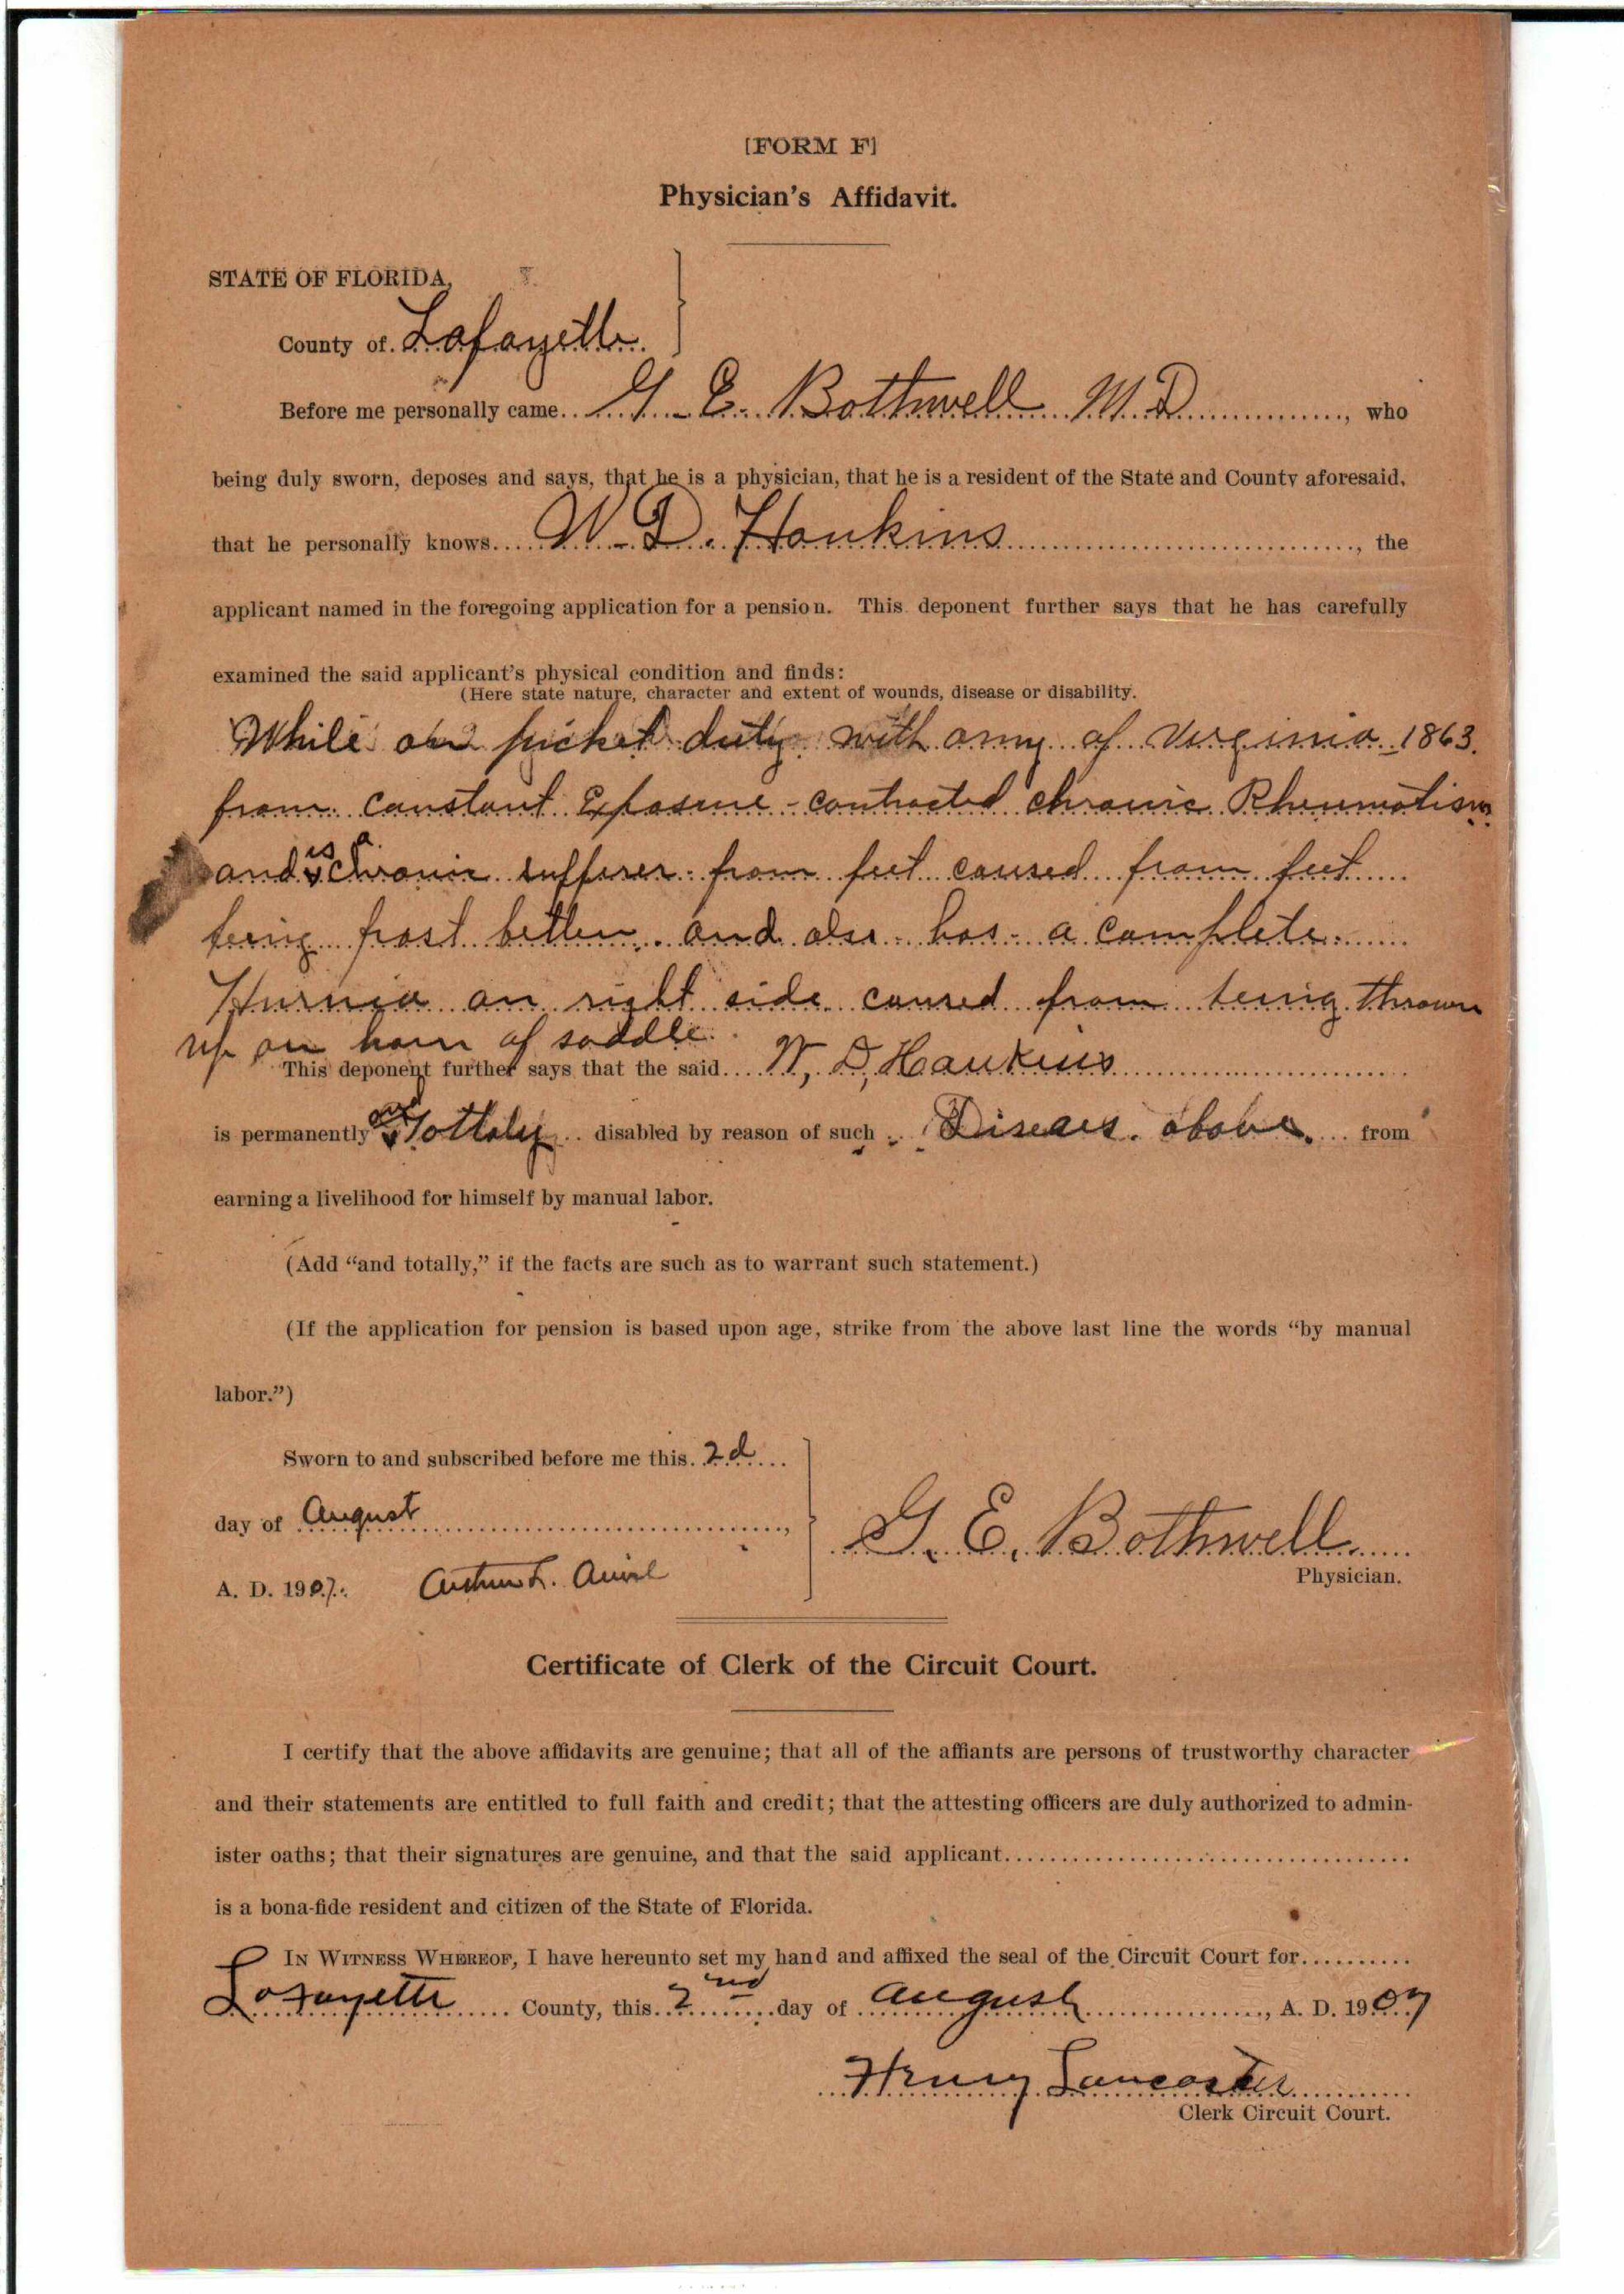 [FORM F]
Physician's Affidavit.
STATE OF FLORIDA,
County of Lafayette
Before me personally came G. E. Bothwell M.D., who
being duly sworn, deposes and says, that he is a physician, that he is a resident of the State and County aforesaid,
that he personally knows W. D. Hankins, the
applicant named in the foregoing application for a pension. This deponent further says that he has carefully
examined the said applicant's physical condition and finds:
(Here state nature, character and extent of wounds, disease or disability.
While on picket duty with army of Virginia 1863.
from constant Exposure - contracted chronic Rheumatism
and is a chronic sufferer from feet caused from feet
being frost bitten. and also has a complete
Hurnia on right side caused from being thrown
up on horn of saddle.
This deponent further says that the said W. D. Hankins
is permanently and Tottaly disabled by reason of such Diseases above from
earning a livelihood for himself by manual labor.
(Add "and totally," if the facts are such as to warrant such statement.)
(If the application for pension is based upon age, strike from the above last line the words "by manual
labor.")
Sworn to and subscribed before me this 2d
day of August,
A. D. 1907.
G. E. Bothwell
Physician.
Certificate of Clerk of the Circuit Court.
I certify that the above affidavits are genuine; that all of the affiants are persons of trustworthy character
and their statements are entitled to full faith and credit; that the attesting officers are duly authorized to admin-
ister oaths; that their signatures are genuine, and that the said applicant
is a bona-fide resident and citizen of the State of Florida.
IN WITNESS WHEREOF, I have hereunto set my hand and affixed the seal of the Circuit Court for
Lafayette County, this 2nd day of August, A. D. 1907
Henry Lancaster
Clerk Circuit Court.